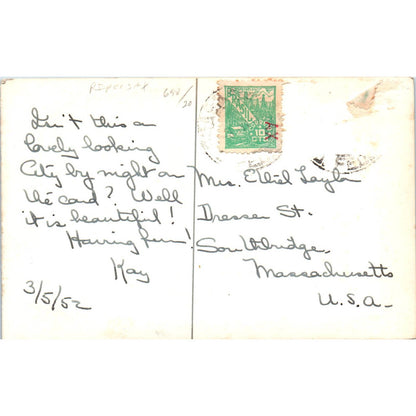 650/20
Isn't this a
lovely looking
City by night on
the card? Well
it is beautiful!
Having fun!
Kay
3/5/52
10
CTS
Mrs. Ethel Taylor
Dresser St.
Southbridge,
Massachusetts
U.S.A.